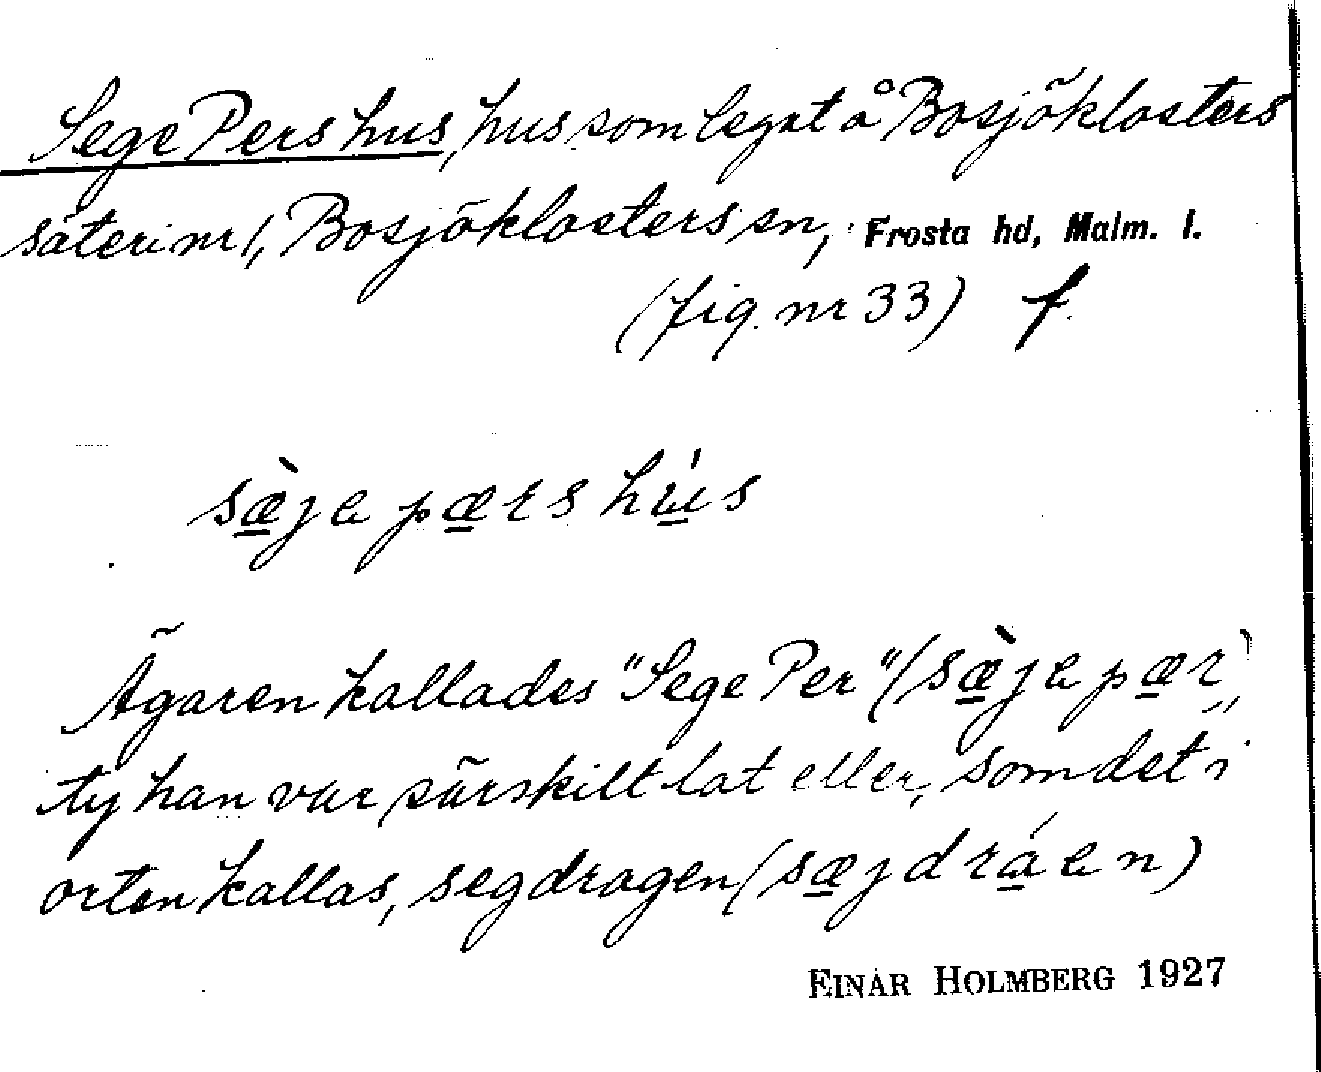 Sege Pers hus, hus som legat å Bosjöklosters
säteri nr 1, Bosjöklosters sn, Frosta hd, Malm. l.
(fig. nr 33) f.
sæ̀jepærs hús
Ägaren kallades "Sege Per" (sæ̀jepær),
ty han var särskilt lat eller, som det i
orten kallas, segdragen (sæjdráen)
EINAR HOLMBERG 1927